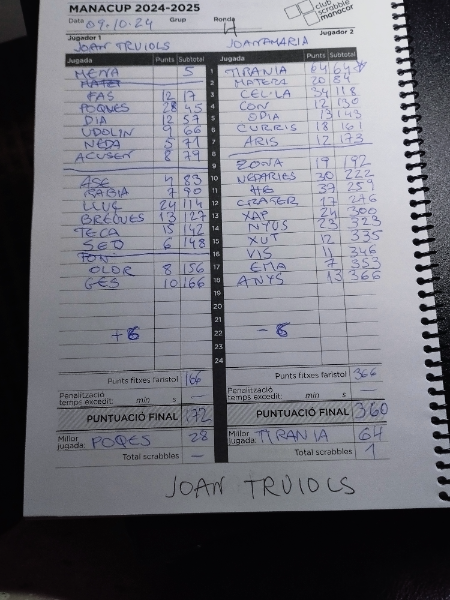 MANACUP 2024-2025
club scrabble manacor
Data 09-10-24 Grup Ronda 4
Jugador 1 Jugador 2
JOAN TRUIOLS JOANEMARIA
Jugada Punts Subtotal Jugada Punts Subtotal
MENA 5 1 TIRANIA 64 64
2 MATERA 20 84
FAS 12 17 3 CEL·LA 34 118
POQUES 28 45 4 CON 12 130
DIA 12 57 5 ODIA 13 143
UDOLIN 9 66 6 CURRIS 18 161
NEDA 5 71 7 ARIS 12 173
ACUSEN 8 79 8
9 ZONA 19 192
ASE 4 83 10 NEPARIES 30 222
RABIA 7 90 11 HE 37 259
LLUC 24 114 12 CRATER 17 276
BREGUES 13 127 13 XAP 24 300
TECA 15 142 14 NYUS 23 323
SEU 6 148 15 XUT 12 335
16 VIS 11 346
OLOR 8 156 17 EMA 7 353
GES 10 166 18 ANYS 13 366
19
20
21
+6 22 -6
23
24
Punts fitxes faristol 166 Punts fitxes faristol 366
Penalització temps excedit: min s — Penalització temps excedit: min s —
PUNTUACIÓ FINAL 172 PUNTUACIÓ FINAL 360
Millor jugada: POQES 28 Millor jugada: TIRANIA 64
Total scrabbles — Total scrabbles 1
JOAN TRUIOLS